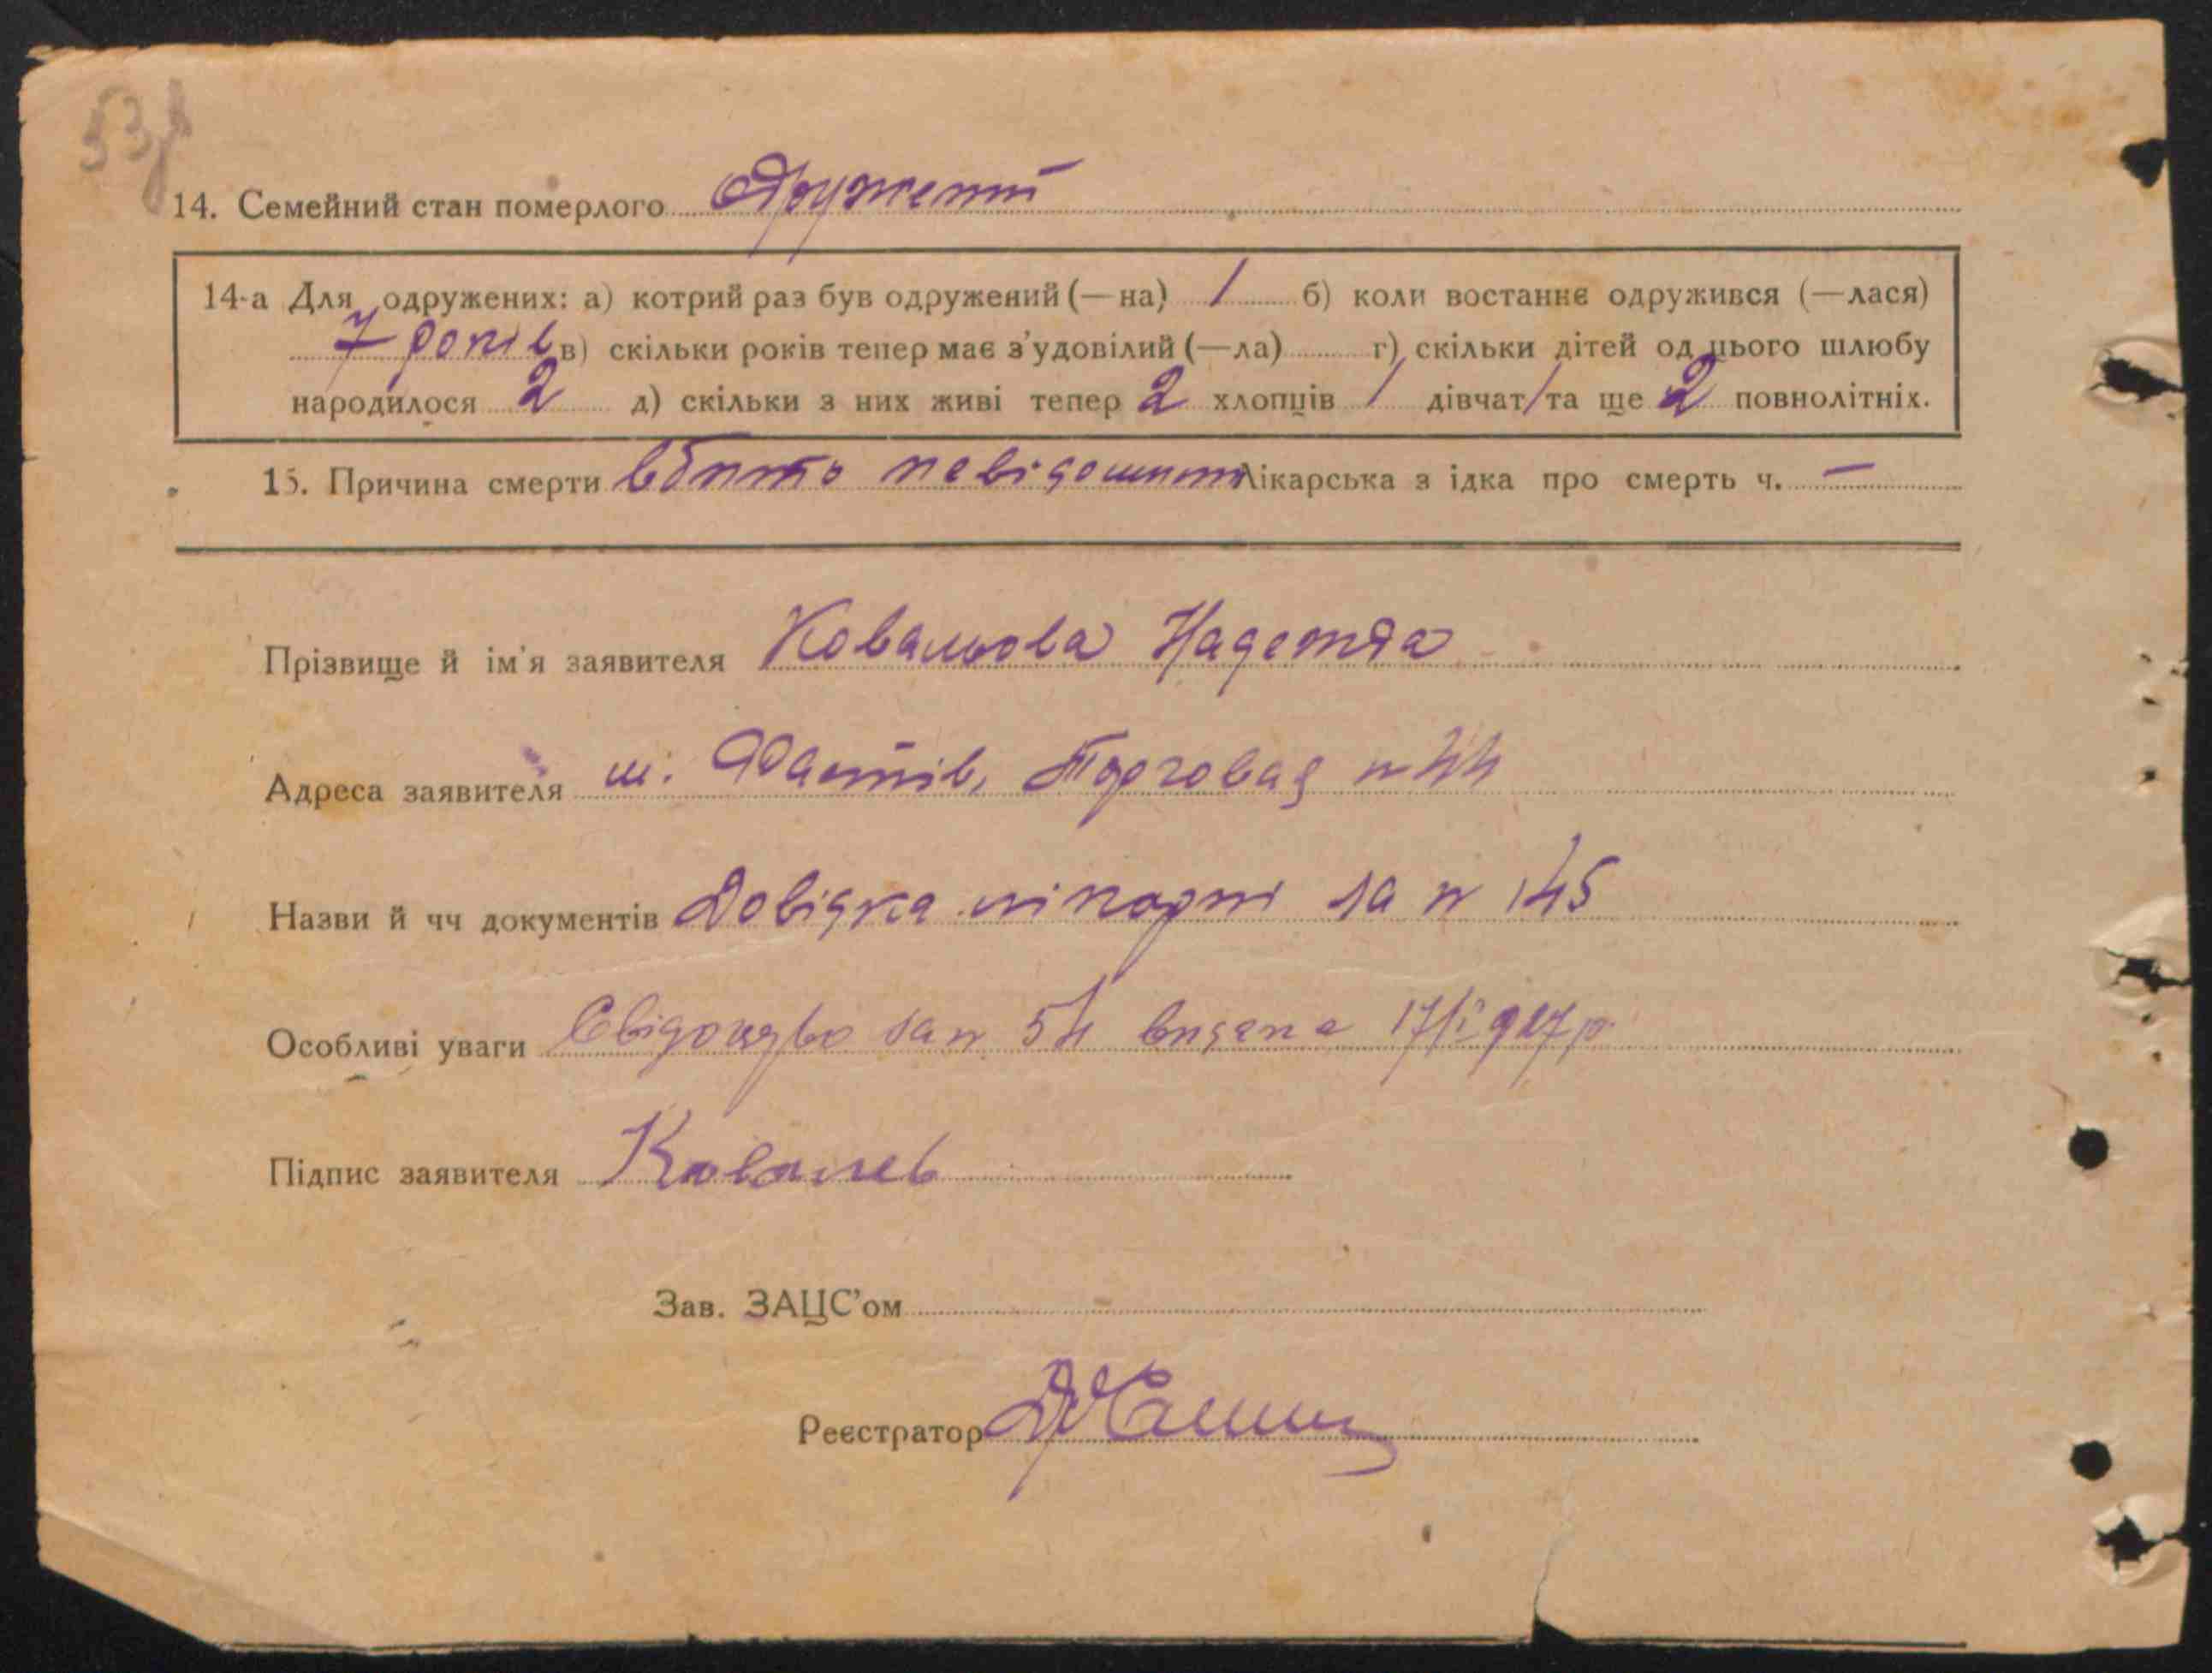 14. Семейний стан померлого Одружений
14-а Для одружених: а) котрий раз був одружений (—на) 1 б) коли востаннє одружився (—лася)
7 років в) скільки років тепер має з'удовілий (—ла) г) скільки дітей од цього шлюбу
народилося 2 д) скільки з них живі тепер 2 хлопців 1 дівчат 1 та ще 2 повнолітніх.
15. Причина смерти вбито Лікарська з ідка про смерть ч. —
Прізвище й ім'я заявителя Ковальова Надежда
Адреса заявителя м. Фастів, Торговая н 44
Назви й чч документів Довідка лікарні за н 145
Особливі уваги за н 54 видана
Підпис заявителя Ковалев
Зав. ЗАЦС'ом
Реєстратор